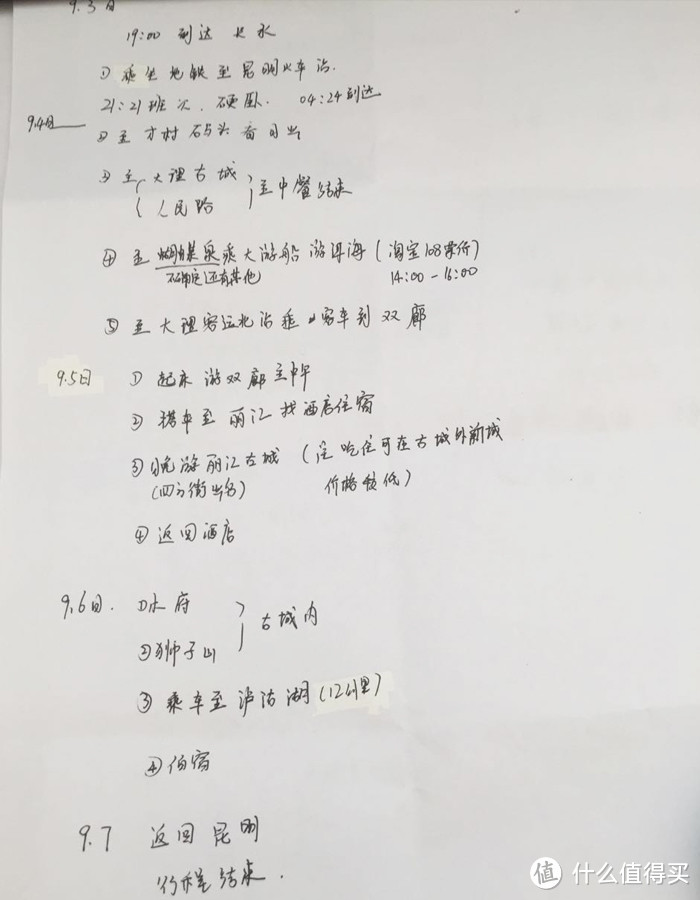 9.3日
19:00 到达 长水
① 乘坐地铁至昆明火车站.
21:21班次. 硬卧. 04:24到达
9.4日
② 至 才村码头看日出
③ 至 大理古城 至中餐结束
人民路
④ 至 蝴蝶泉乘大游船 游洱海 (淘宝108票价)
不确定还有其他 14:00-16:00
⑤ 至大理客运北站乘 客车到双廊
9.5日 ① 起床 游双廊至中午
② 搭车至 丽江 找酒店住宿
③ 晚游丽江古城 (注 吃住可在古城外 城
(四方街出名) 价格较低)
④ 返回酒店
9.6日. ① 木府 古城内
② 狮子山
③ 乘车至 泸沽湖
④ 住宿
9.7 返回昆明
行程结束.
值 什么值得买